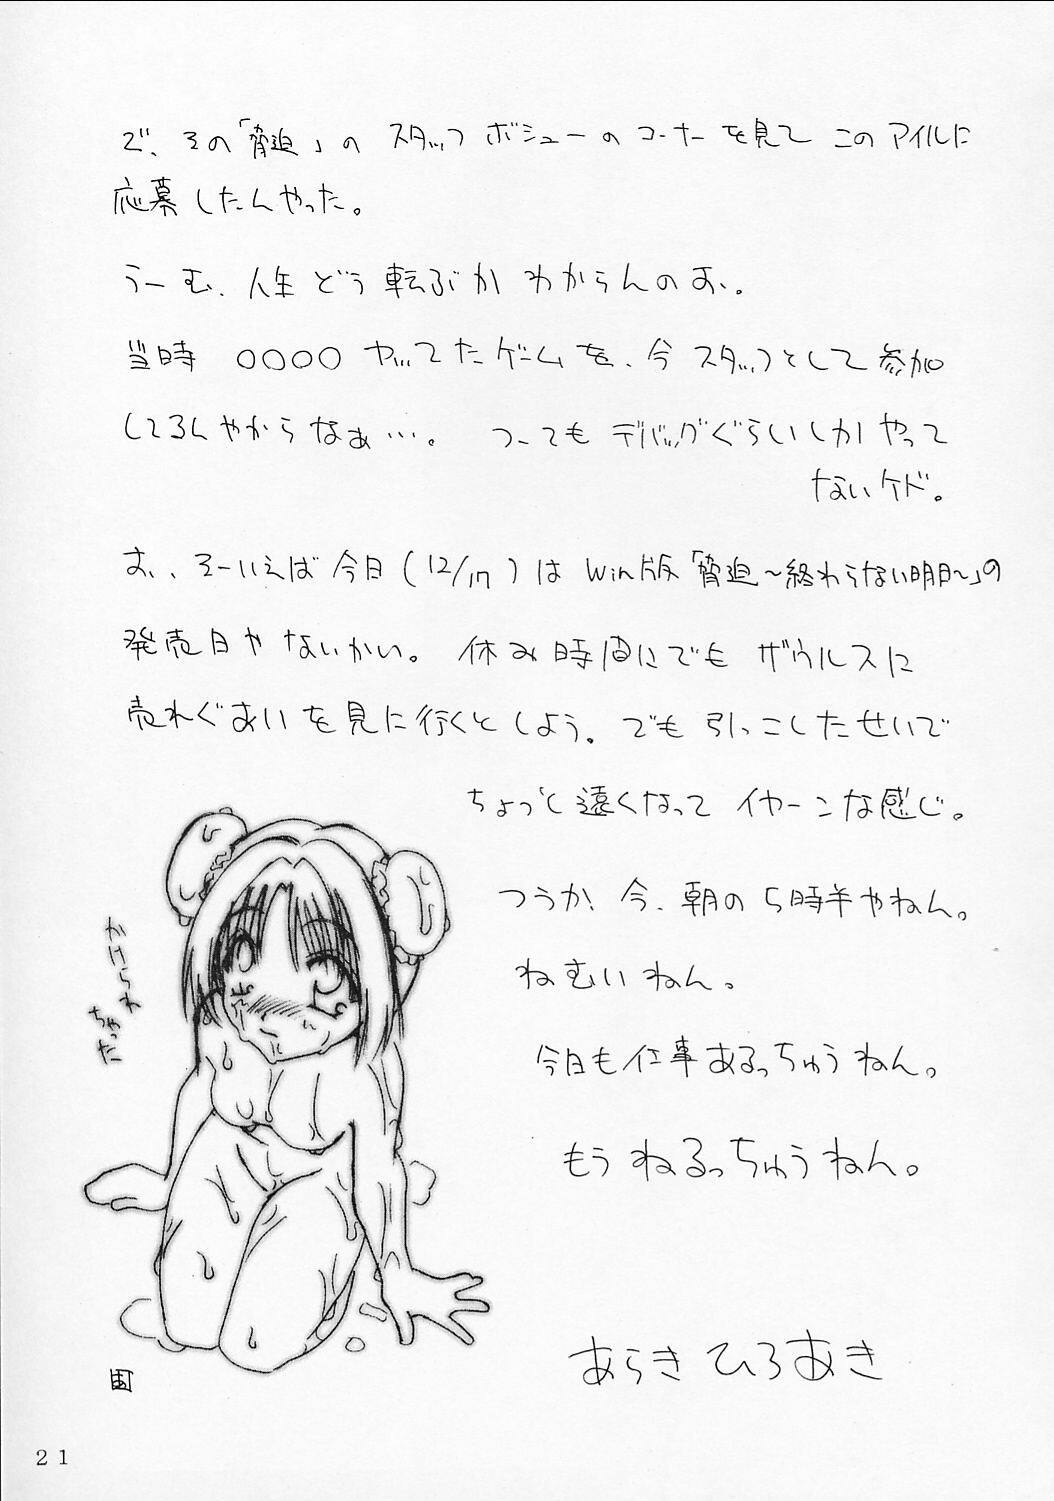 で、その「脅迫」の スタッフ ボシューの コーナーを見て このアイルに
応募したんやった。
うーむ、人生 どう転ぶか わからんのお、。
当時 ○○○○ やってたゲームを、今 スタッフとして参加
してるんやからなぁ…。 つーても デバッグぐらいしかやって
ないケド。
お、そーいえば今日(12/17)は Win版「脅迫〜終わらない明日〜」の
発売日やないかい。 休み時間にでも ザウルスに
売れぐあいを見に行くとしよう。でも引っこしたせいで
ちょっと遠くなって イヤーンな感じ。
つうか、今、朝の5時半やねん。
ねむいねん。
今日も仕事あるっちゅうねん。
もうねるっちゅうねん。
かけられ
ちゃった
あらき ひろあき
21